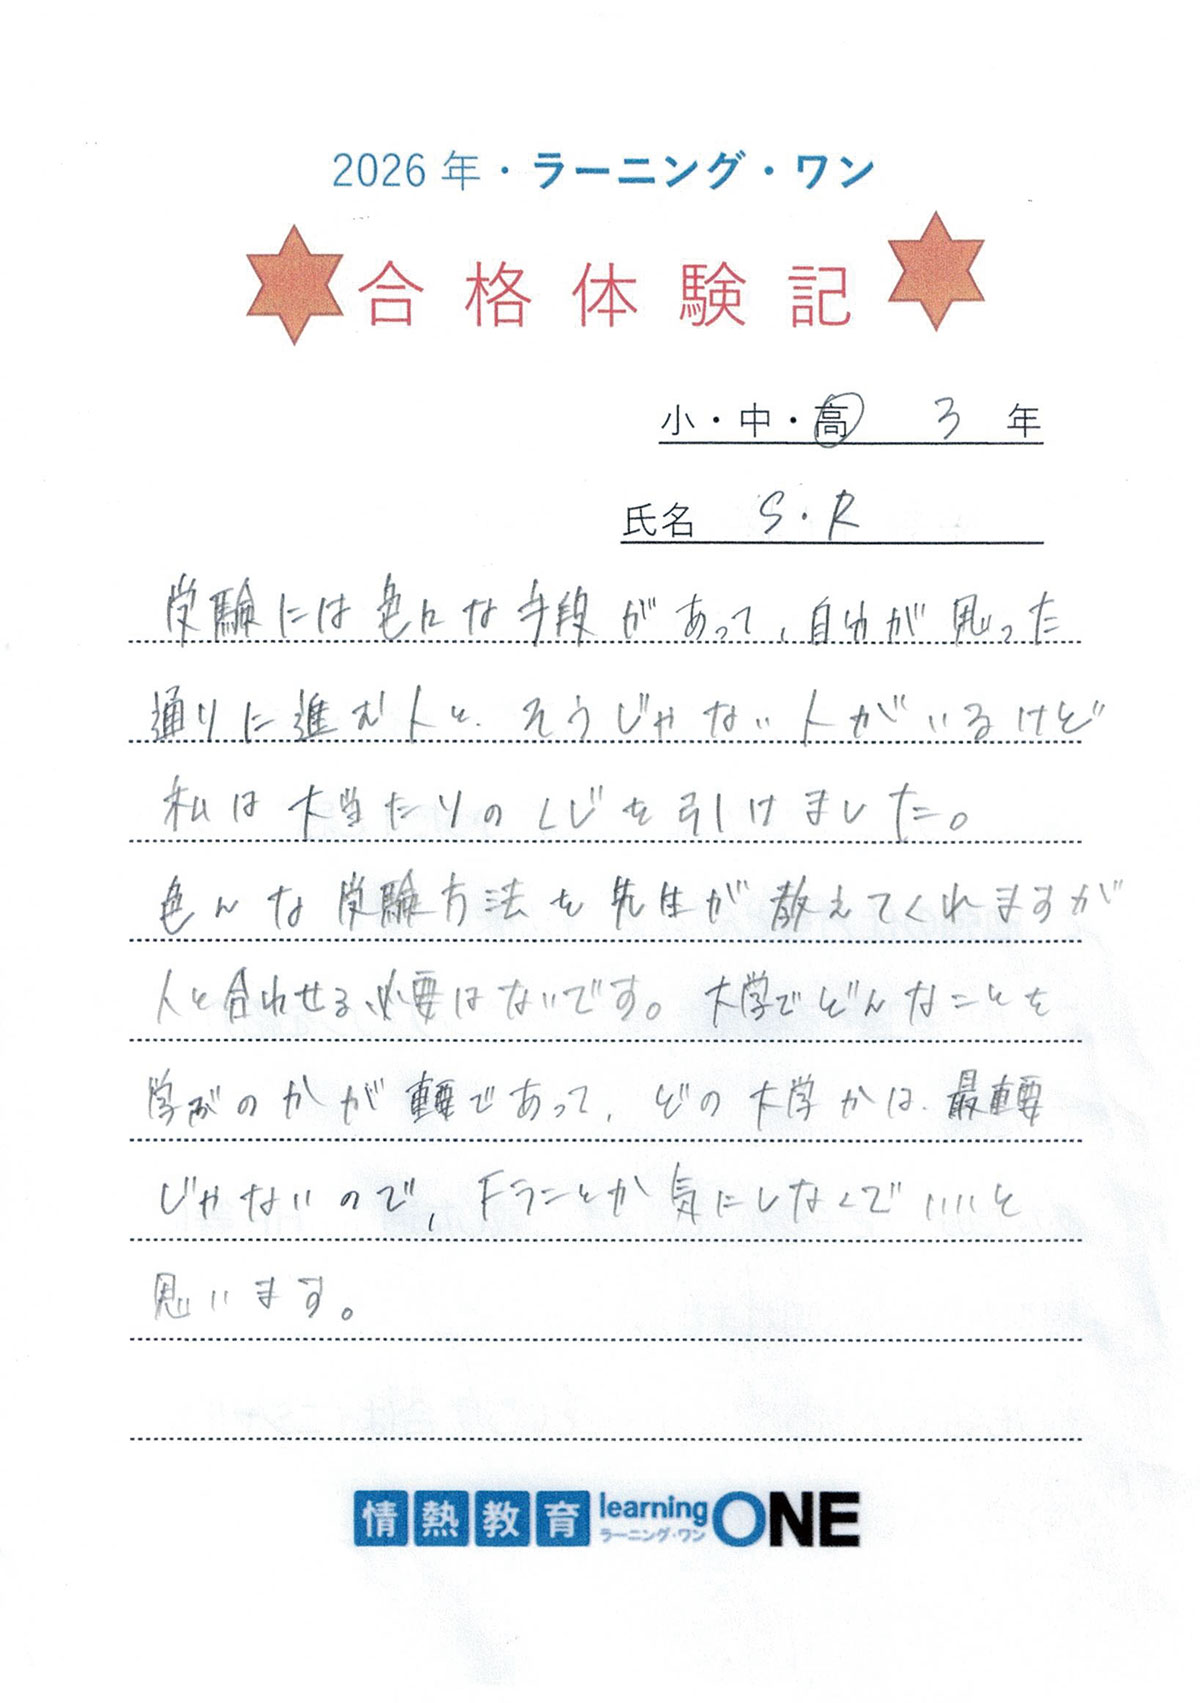 2026年・ラーニング・ワン
合格体験記
小・中・高 3 年
氏名 S・R
受験には色々な手段があって、自分が思った
通りに進む人と、そうじゃない人がいるけど
私は大当たりのくじを引けました。
色んな受験方法を先生が教えてくれますが
人と合わせる必要はないです。大学でどんなことを
学ぶのかが重要であって、どの大学かは、最重要
じゃないので、Fランとか気にしなくていいと
思います。
情熱教育 learning ラーニング・ワン ONE